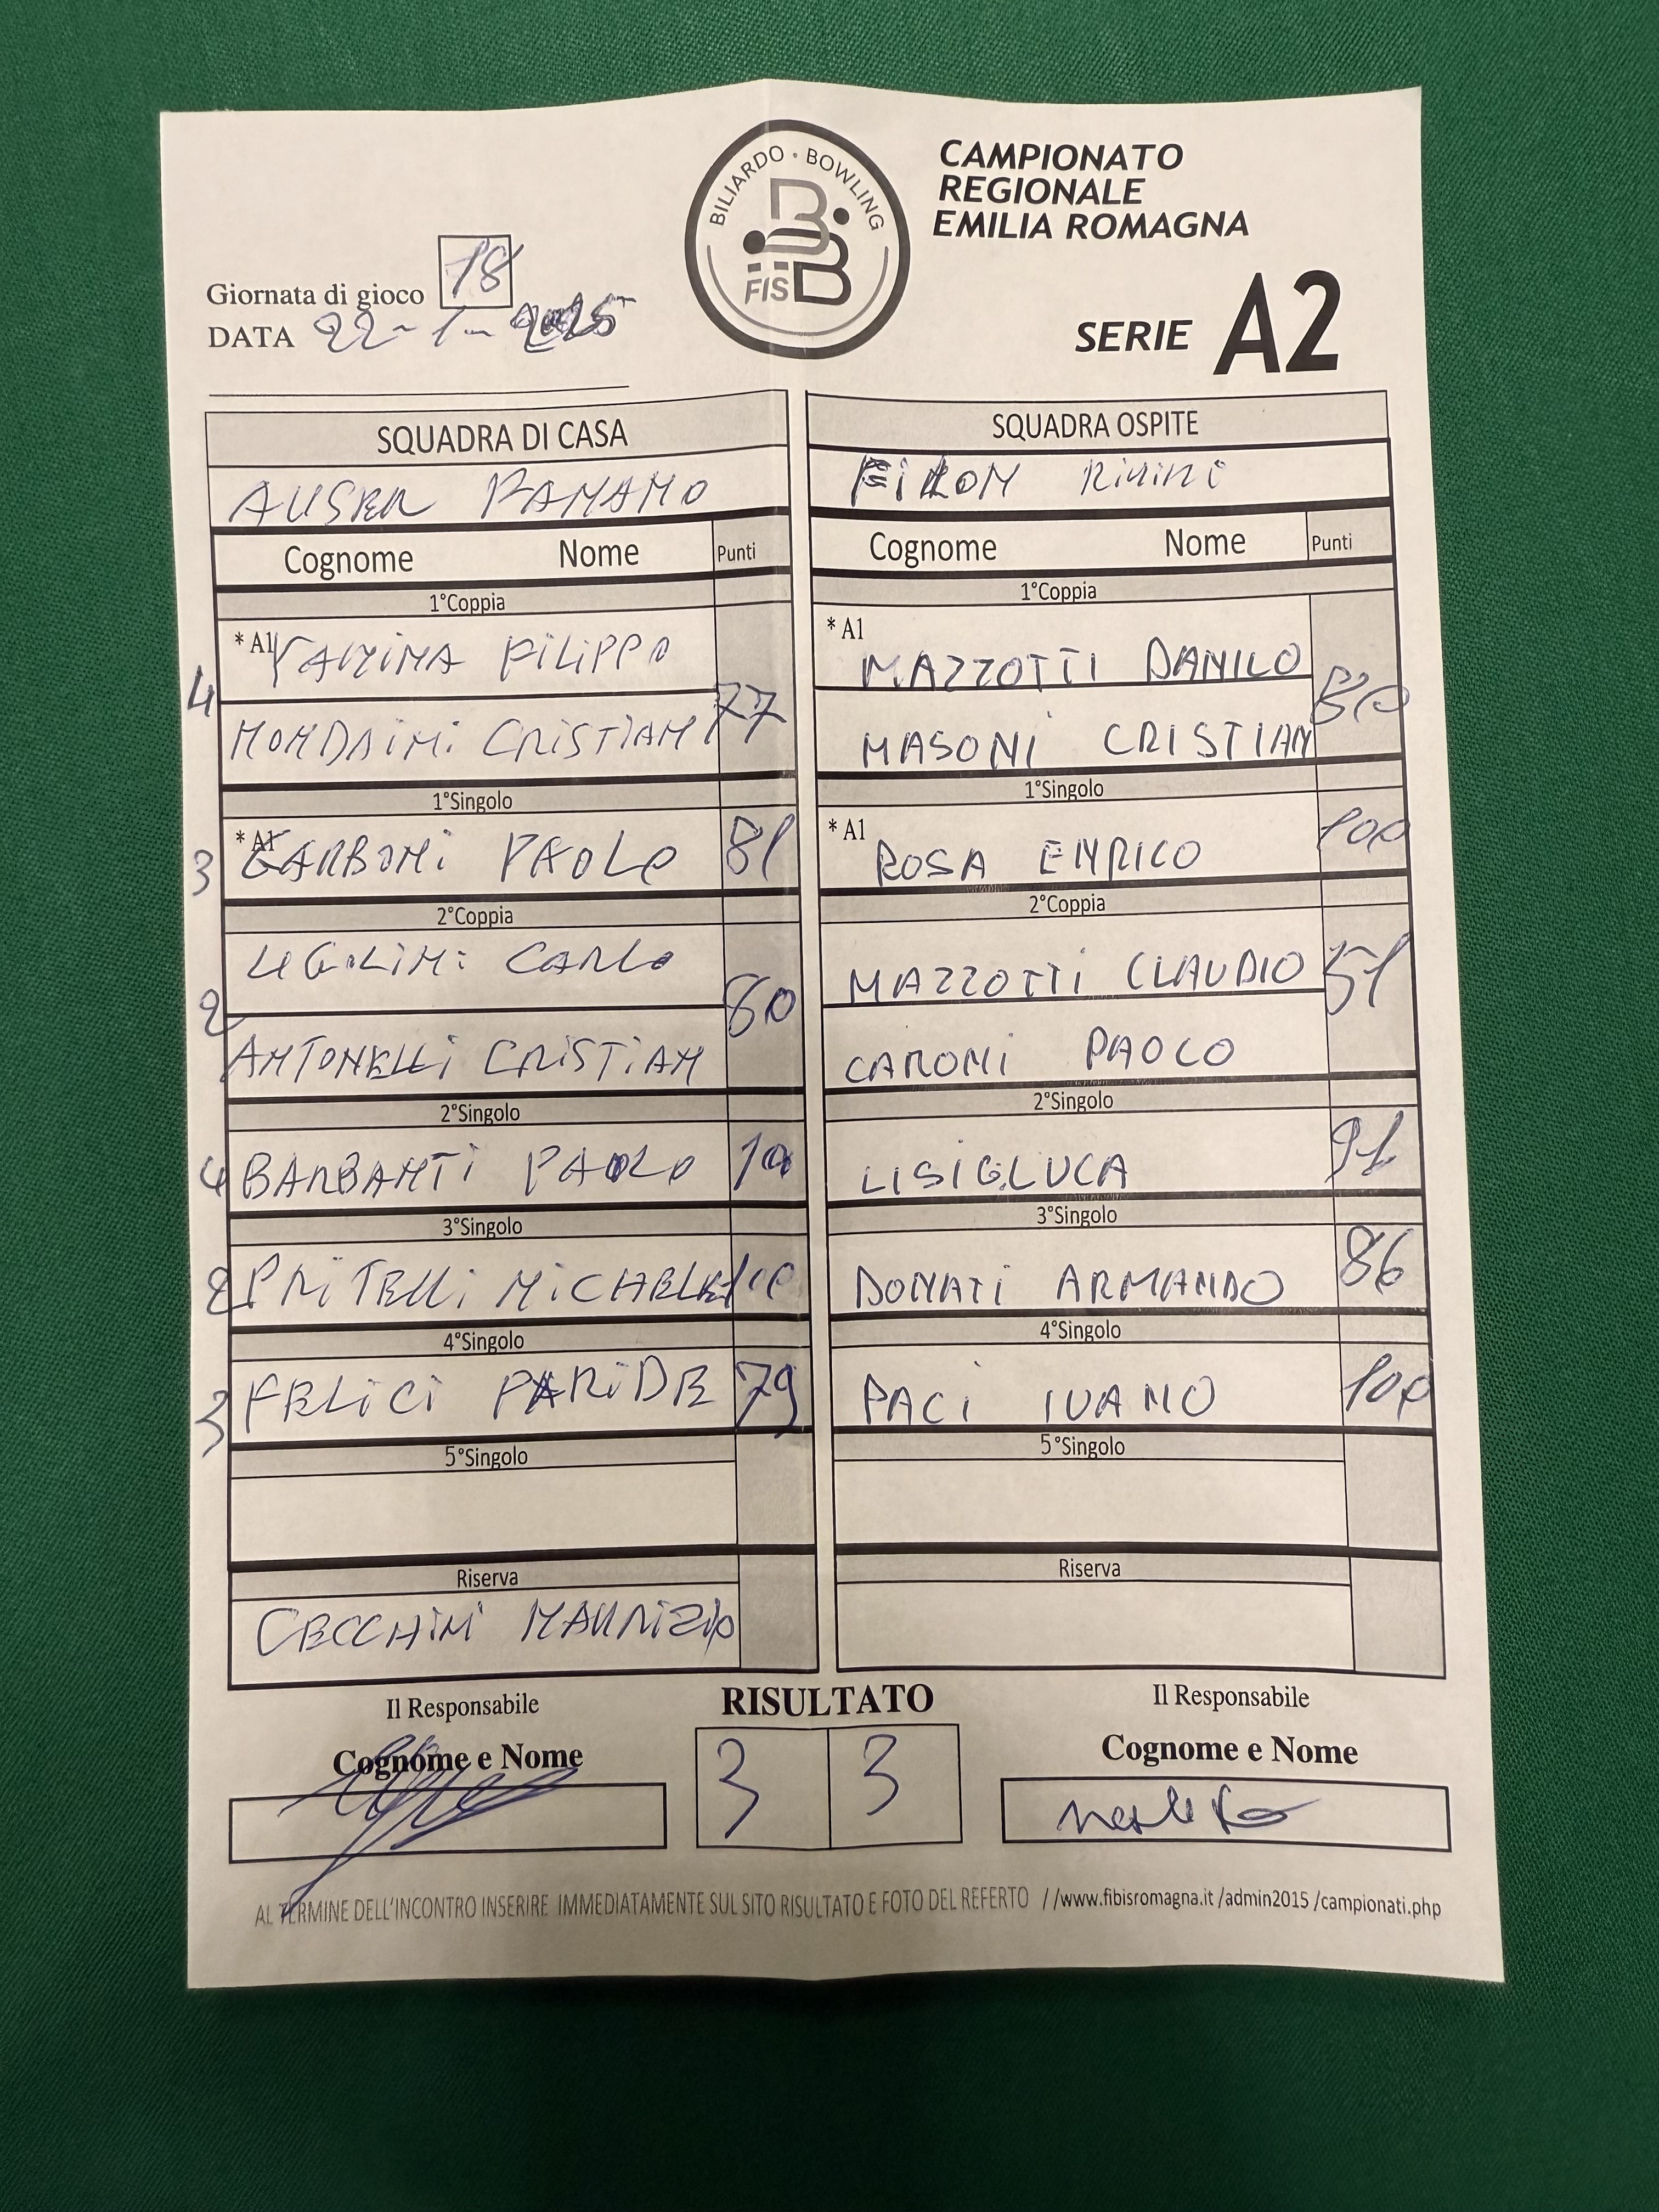 BILIARDO · BOWLING
FISBB
CAMPIONATO
REGIONALE
EMILIA ROMAGNA
SERIE A2
Giornata di gioco 18
DATA 22-1-2025
SQUADRA DI CASA
SQUADRA OSPITE
AUSER PANANO
RIMINI
Cognome Nome Punti
Cognome Nome Punti
1°Coppia
1°Coppia
* A1 FILIPPO
4
77
MONDAINI CRISTIAN
* A1 MAZZOTTI DANILO
80
MASONI CRISTIAN
1°Singolo
1°Singolo
3 * A1 GARBONI PAOLO 81
* A1 ROSA ENRICO 100
2°Coppia
2°Coppia
UGOLINI CARLO
2
ANTONELLI CRISTIAN
MAZZOTTI CLAUDIO
51
CARONI PAOLO
2°Singolo
2°Singolo
4 BARBANTI PAOLO
LISI G.LUCA
3°Singolo
3°Singolo
2 PRITELLI MICHELE 100
DONATI ARMANDO 86
4°Singolo
4°Singolo
3 FELICI PARIDE 79
PACI IVANO 100
5°Singolo
5°Singolo
Riserva
Riserva
CECCHINI MAURIZIO
Il Responsabile
RISULTATO
Il Responsabile
Cognome e Nome
3 3
Cognome e Nome
AL TERMINE DELL'INCONTRO INSERIRE IMMEDIATAMENTE SUL SITO RISULTATO E FOTO DEL REFERTO //www.fibisromagna.it /admin2015 /campionati.php